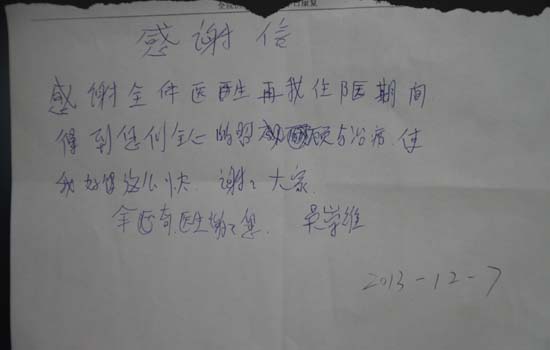 感谢信
感谢全体医生再我住医期间
得到您们全心的照顾与治疗.使
我好得这么快.谢谢大家.
医生谢谢您. 吴学维
2013-12-7